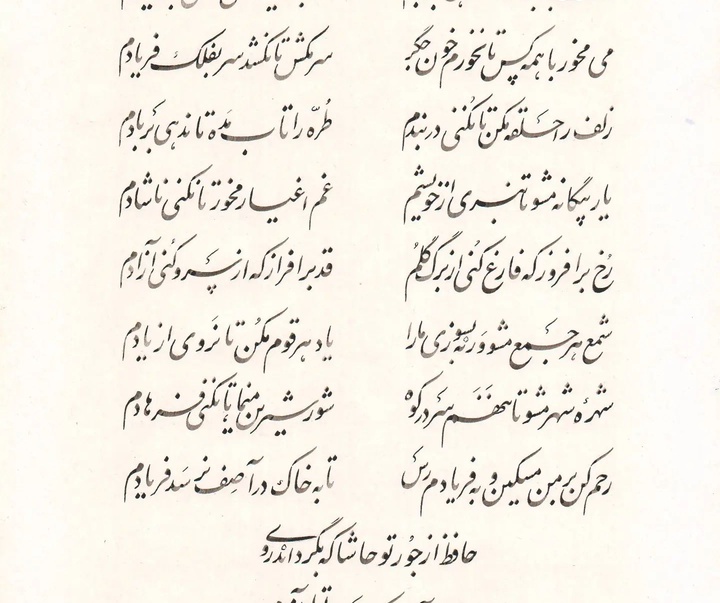 می مخور با همه کس تا نخورم خون جگر سر مکش تا نکشد سر بفلک فریادم
زلف را حلقه مکن تا نکنی در بندم طُرّه را تاب مده تا ندهی بر بادم
یار بیگانه مشو تا نبری از خویشم غم اغیار مخور تا نکنی ناشادم
رُخ برافروز که فارغ کنی از برگ گلم قد برافراز که از سرو کنی آزادم
شمع هر جمع مشو ورنه بسوزی ما را یاد هر قوم مکن تا نروی از یادم
شهرهٔ شهر مشو تا ننهم سر در کوه شور شیرین منما تا نکنی فرهادم
رحم کن بر من مسکین و به فریادم رس تا به خاک در آصف نرسد فریادم
حافظ از جور تو حاشا که بگرداند روی